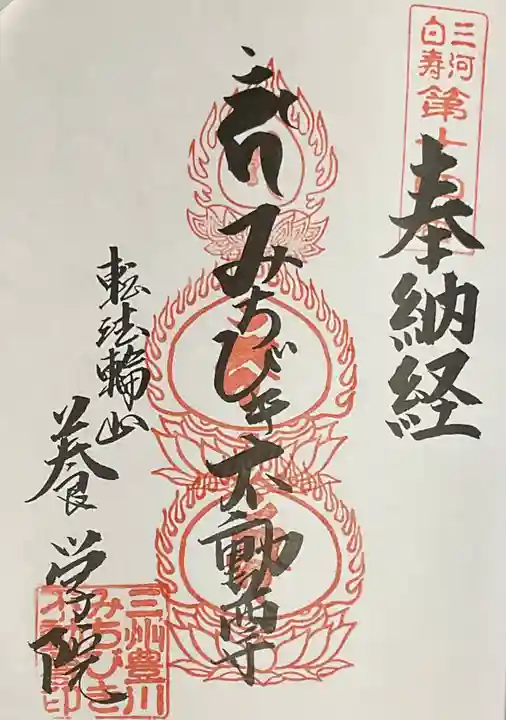 三河
白寿
第十四
奉納経
みちびき不動尊
転法輪山
養学院
三州豊川
みちびき
不動
印